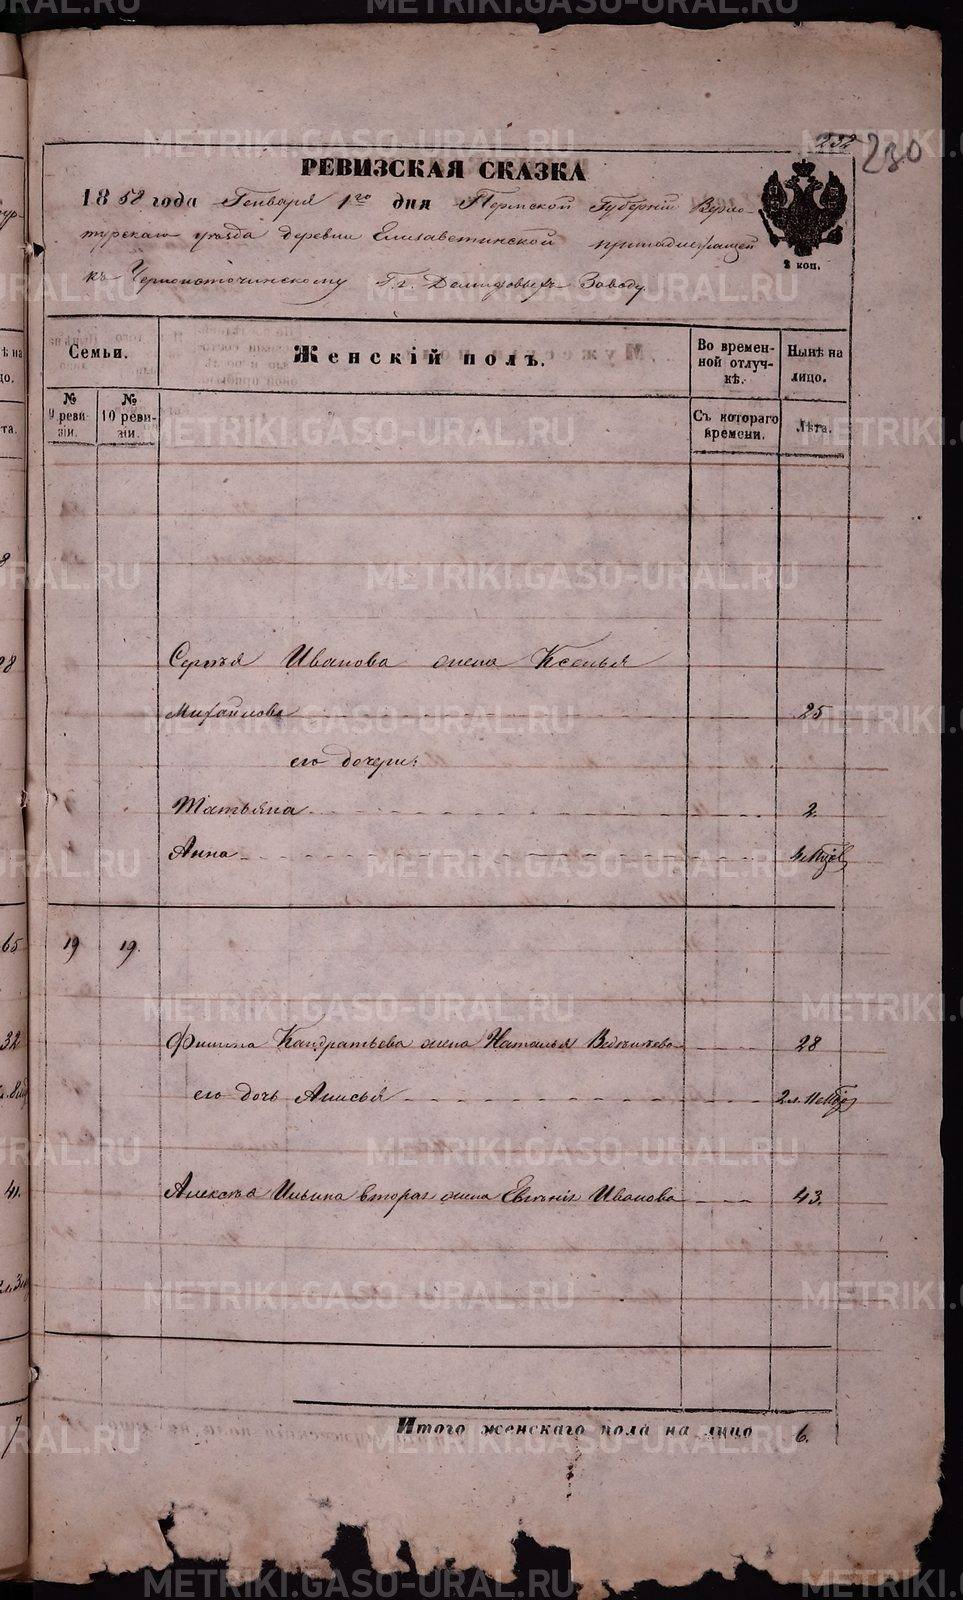 232
230
РЕВИЗСКАЯ СКАЗКА
1858 года Генваря 1го дня Пермской Губерніи Верхо-
турскаго уѣзда деревни Елисаветинской принадлежащей
къ Черноисточинскому Гг. Демидовыхъ Заводу
2 коп.
Семьи.
Женскій полъ.
Во времен-
ной отлуч-
кѣ.
Нынѣ на
лицо.
№
9 реви-
зіи.
№
10 реви-
зіи.
Съ котораго
времени.
Лѣта.
Сергѣя Иванова жена Ксенья
Михайлова 25
его дочери:
Татьяна 2.
Анна
19 19.
Филипа Кандратьева жена Наталья 28
его дочь Анисья 2 л. 11
Алексѣя Ильина вторая жена Евгенія Иванова 43.
Итого женскаго пола на лицо 6.
METRIKI.GASO-URAL.RU